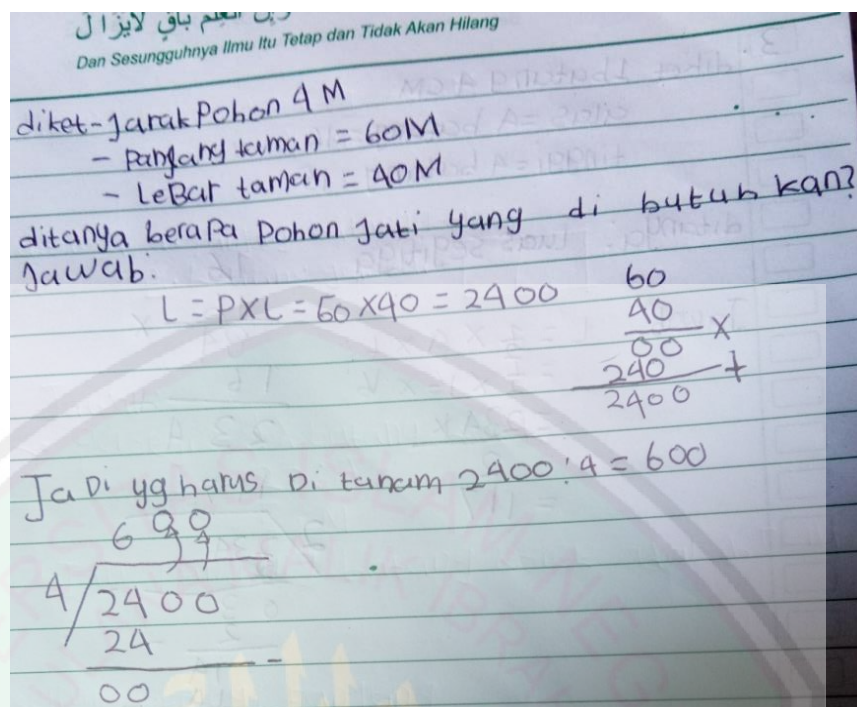 العلم باق لايزال
Dan Sesungguhnya Ilmu Itu Tetap dan Tidak Akan Hilang
diket - Jarak Pohon 4 M
- Panjang taman = 60M
- LeBar taman = 40M
ditanya berapa Pohon Jati yang di butuh kan?
Jawab:
L = P X L = 60 X 40 = 2400
60
40 X
00
240 +
2400
JaDi yg harus Di tanam 2400 : 4 = 600
600
4 / 2400
24 -
00